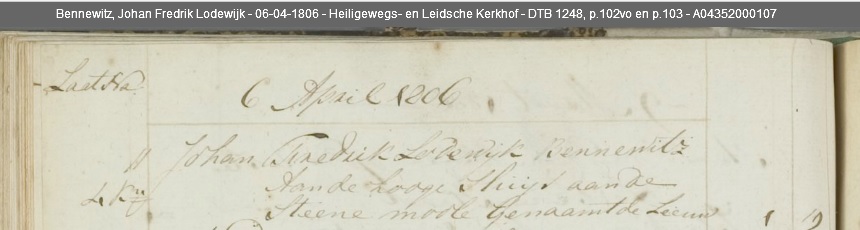 Bennewitz, Johan Fredrik Lodewijk - 06-04-1806 - Heiligewegs- en Leidsche Kerkhof - DTB 1248, p.102vo en p.103 - A04352000107
Laat Na
6 April 1806
Johan Fredrik Lodewijk Bennewitz
4 Kn
Aan de hooge Sluijs aan de
Steene moole Genaamt de Leeuw